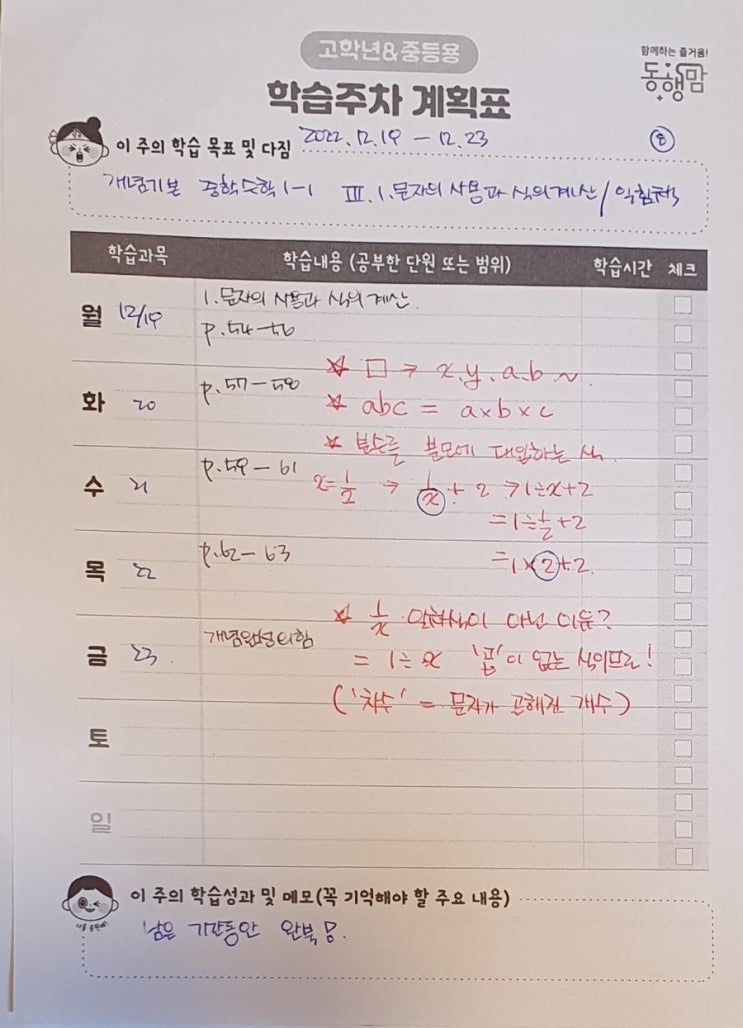 고학년&중등용
학습주차 계획표
함께하는 즐거움!
동행맘
이 주의 학습 목표 및 다짐 2022.12.19 - 12.23 ⑧
개념기본 중학수학 1-1 Ⅲ.1.문자의 사용과 식의계산/익힘책
학습과목 학습내용 (공부한 단원 또는 범위) 학습시간 체크
월 12/19 1.문자의 사용과 식의계산.
p.54-56
☆ □ → x.y.a.b ~.
화 20 p.57-58
☆ abc = a×b×c
☆ 분수를 분모에 대입하는 식.
수 21 p.59-61
x=1/2 → 1/x + 2 → 1÷x+2
=1÷1/2+2
목 22 p.62-63
=1×2+2.
☆ 1/x 일차식이 아닌 이유?
금 23. 개념완성시험
= 1÷x '곱'이 없는 식이므로!
('차수' = 문자가 곱해진 개수)
토
일
이 주의 학습성과 및 메모(꼭 기억해야 할 주요 내용)
남은 기간동안 완북